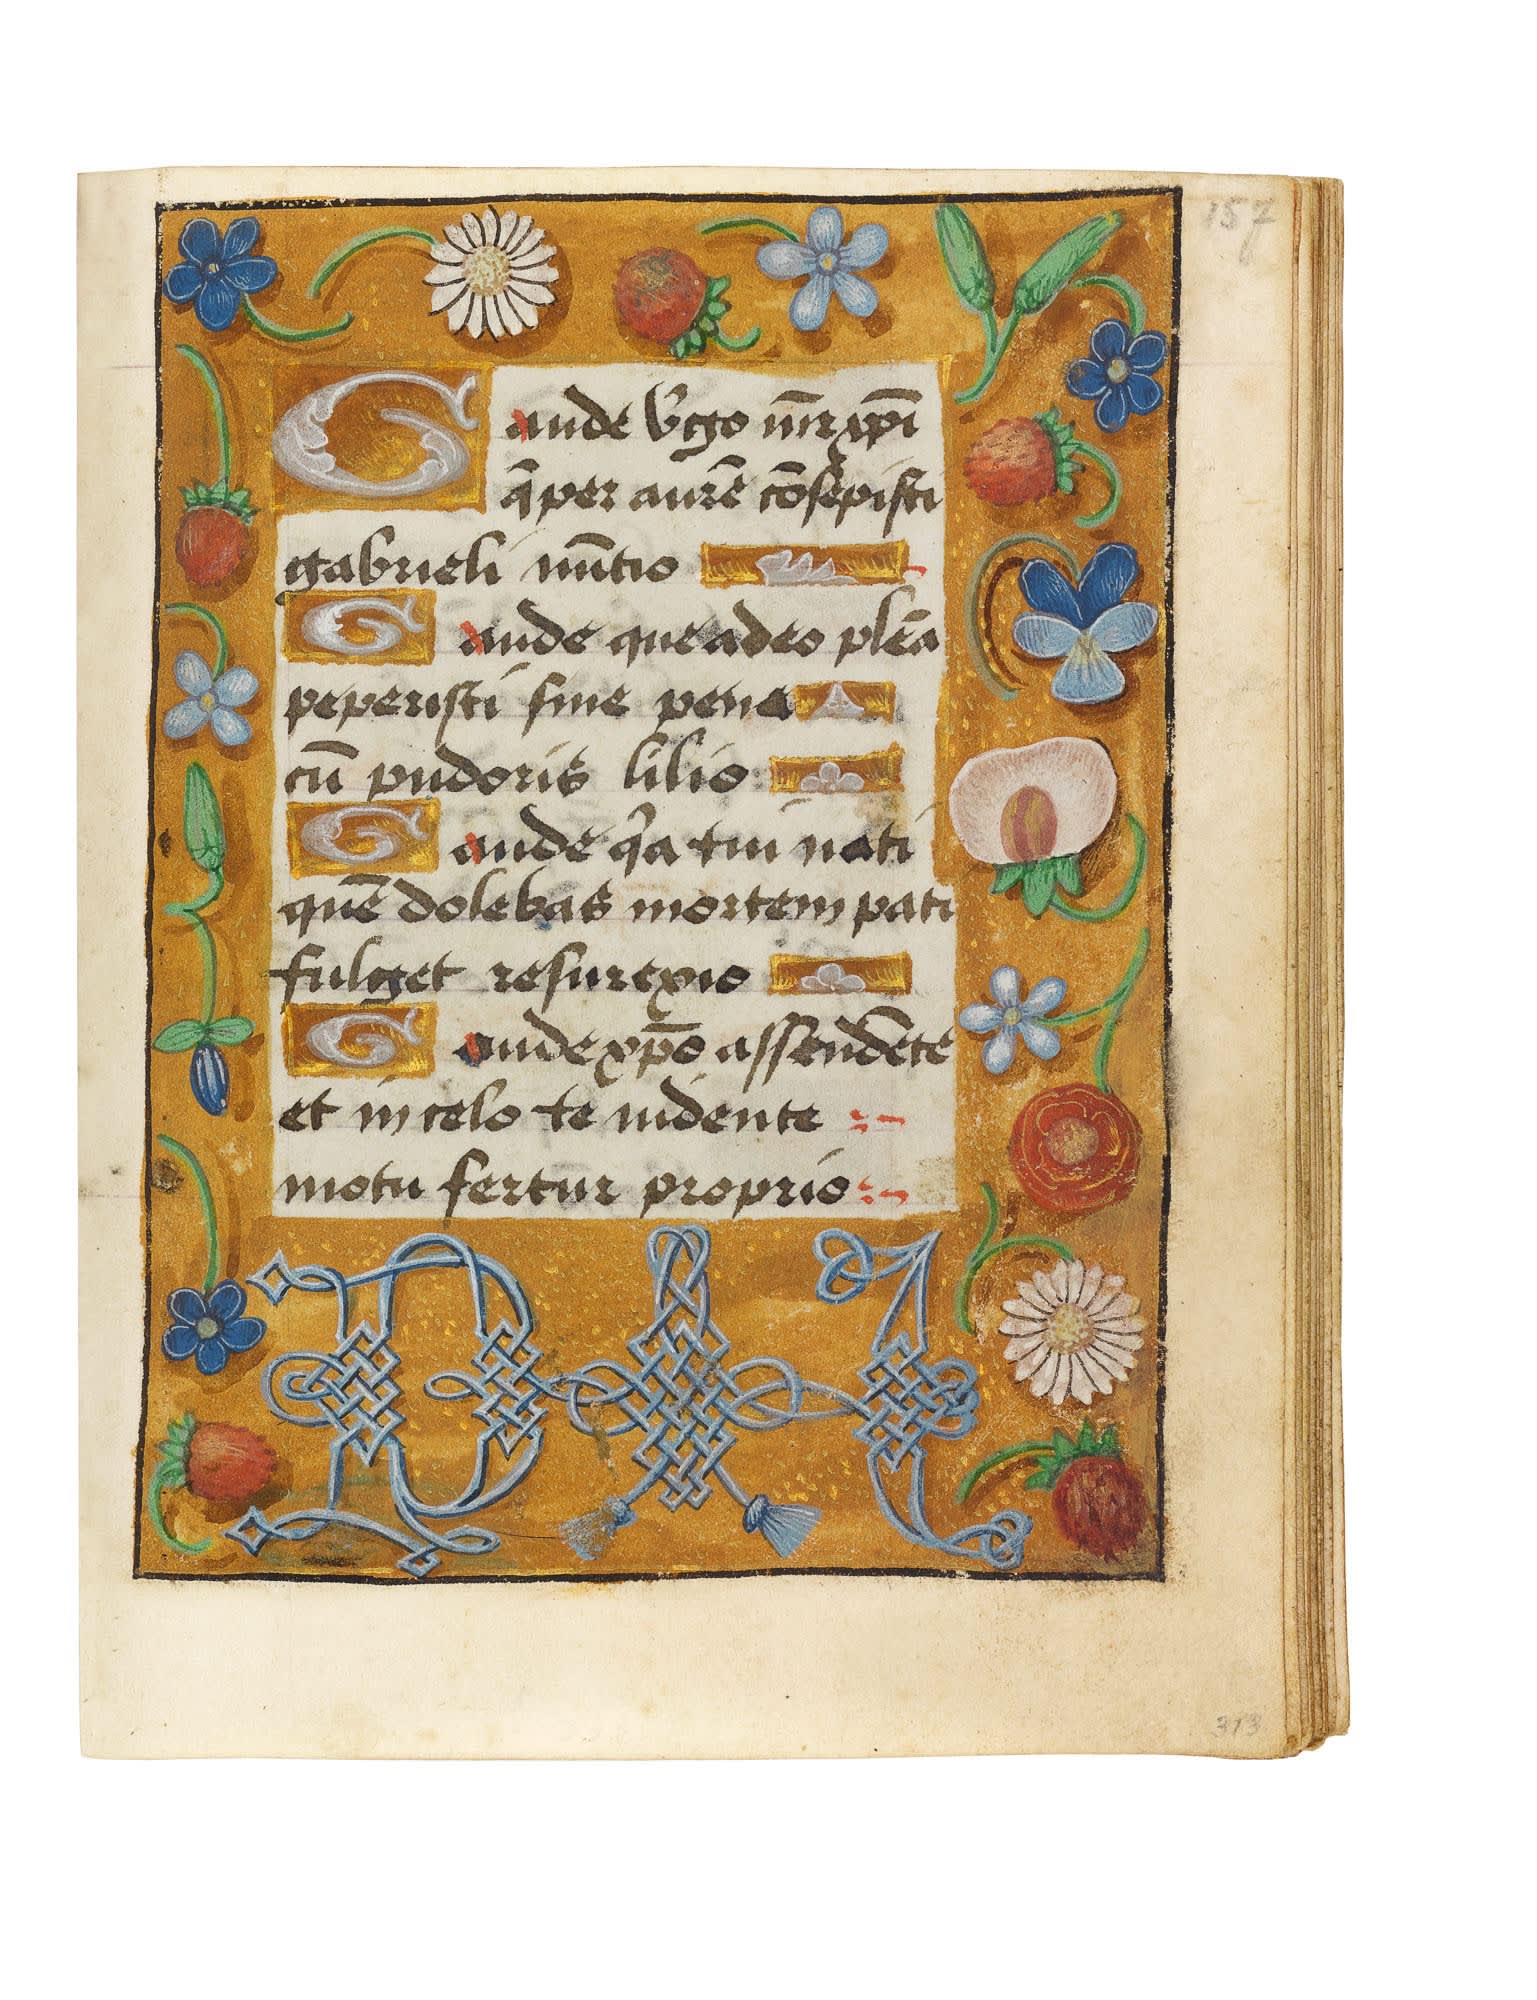 157
Gaude v̄go mr̄ xp̄i
q̄ per aurē cōsepisti
gabrieli nūtio
Gaude que a deo plēa
peperisti sine pena
cū pudoris lilio
Gaude qͥa tui nati
quē dolebas mortem pati
fulget resurexio
Gaude xp̄o assendēte
et in celo te uidente
motu fertur proprio
313